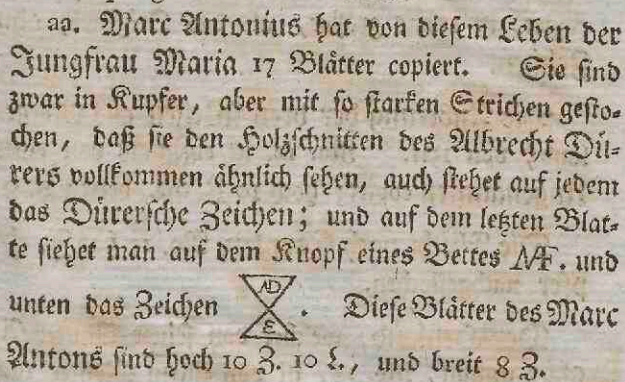 aa. Marc Antonius hat von diesem Leben der
Jungfrau Maria 17 Blåtter copiert. Sie sind
zwar in Kupfer, aber mit so starken Strichen gesto-
chen, daß sie den Holzschnitten des Albrecht Dü-
rers vollkommen åhnlich sehen, auch stehet auf jedem
das Dürersche Zeichen; und auf dem letzten Blat-
te siehet man auf dem Knopf eines Bettes MF. und
unten das Zeichen AD E. Diese Blåtter des Marc
Antons sind hoch 10 Z. 10 L., und breit 8 Z.